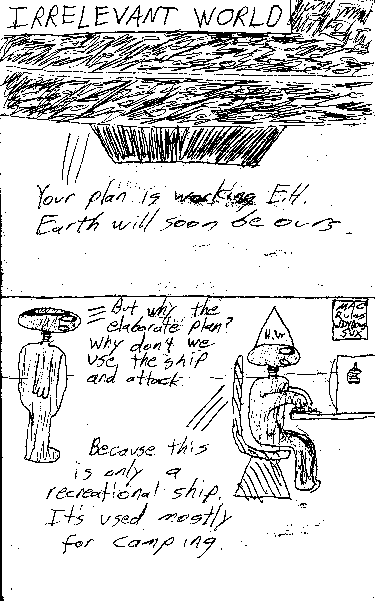 IRRELEVANT WORLD
Your plan is working E.H.
Earth will soon be ours.
But why the
elaborate plan?
Why don't we
use the ship
and attack
H.W
MAC
Rules
SUX
Because this
is only a
recreational ship.
It's used mostly
for camping.